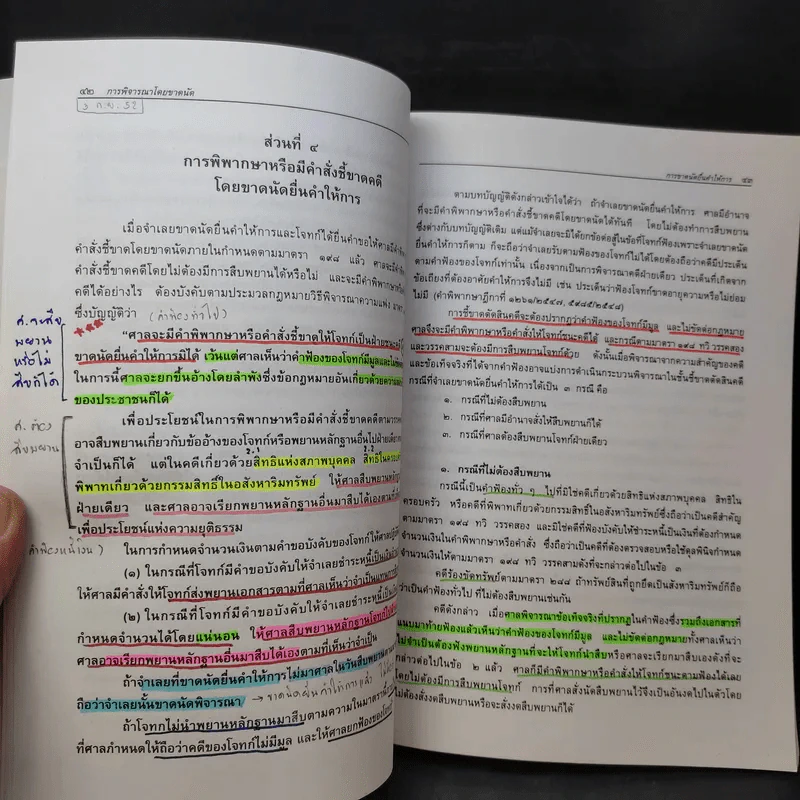 ๔๒ การพิจารณาโดยขาดนัด
3 ก.ย. 52
ส่วนที่ ๔
การพิพากษาหรือมีคำสั่งชี้ขาดคดี
โดยขาดนัดยื่นคำให้การ
เมื่อจำเลยขาดนัดยื่นคำให้การและโจทก์ได้ยื่นคำขอให้ศาลมีคำ
คำสั่งชี้ขาดโดยขาดนัดภายในกำหนดตามมาตรา ๑๙๘ แล้ว ศาลจะมี
คำสั่งชี้ขาดคดีโดยไม่ต้องมีการสืบพยานได้หรือไม่ และจะมีคำพิพากษาหรือ
คดีได้อย่างไร ต้องบังคับตามประมวลกฎหมายวิธีพิจารณาความแพ่ง
ซึ่งบัญญัติว่า (คำฟ้องทั่วไป)
ศ. จะสืบ
พยาน
หรือไม่
สืบก็ได้
"ศาลจะมีคำพิพากษาหรือคำสั่งชี้ขาดให้โจทก์เป็นฝ่ายชนะ
ขาดนัดยื่นคำให้การมิได้ เว้นแต่ศาลเห็นว่าคำฟ้องของโจทก์มีมูลและไม่
ในการนี้ศาลจะยกขึ้นอ้างโดยลำพังซึ่งข้อกฎหมายอันเกี่ยวด้วยความ
ของประชาชนก็ได้
ศ. ต้อง
สืบพยาน
เพื่อประโยชน์ในการพิพากษาหรือมีคำสั่งชี้ขาดคดีตามวรรค
อาจสืบพยานเกี่ยวกับข้ออ้างของโจทก์หรือพยานหลักฐานอื่นไปฝ่ายเดียว
จำเป็นก็ได้ แต่ในคดีเกี่ยวด้วยสิทธิแห่งสภาพบุคคล สิทธิในครอบ
พิพาทเกี่ยวด้วยกรรมสิทธิ์ในอสังหาริมทรัพย์ ให้ศาลสืบพยานหลักฐาน
ฝ่ายเดียว และศาลอาจเรียกพยานหลักฐานอื่นมาสืบได้เองตาม
เพื่อประโยชน์แห่งความยุติธรรม
คำฟ้องหนี้เงิน) ในการกำหนดจำนวนเงินตามคำขอบังคับของโจทก์ให้ศาลปฏิบัติ
(๑) ในกรณีที่โจทก์มีคำขอบังคับให้จำเลยชำระหนี้เป็นเงิน
ให้ศาลมีคำสั่งให้โจทก์ส่งพยานเอกสารตามที่ศาลเห็นว่าจำเป็นแทนการ
(๒) ในกรณีที่โจทก์มีคำขอบังคับให้จำเลยชำระหนี้เป็น
กำหนดจำนวนได้โดยแน่นอน ให้ศาลสืบพยานหลักฐานโจทก์ไปฝ่าย
ศาลอาจเรียกพยานหลักฐานอื่นมาสืบได้เองตามที่เห็นว่าจำเป็น
ถ้าจำเลยที่ขาดนัดยื่นคำให้การไม่มาศาลในวันสืบพยาน
ถือว่าจำเลยนั้นขาดนัดพิจารณา → ขาดนัดยื่นคำให้การแล้ว
ถ้าโจทก์ไม่นำพยานหลักฐานมาสืบตามความในมาตรานี้
ที่ศาลกำหนดให้ถือว่าคดีของโจทก์ไม่มีมูล และให้ศาลยกฟ้องของโจทก์
การขาดนัดยื่นคำให้การ ๔๓
ตามบทบัญญัติดังกล่าวเข้าใจได้ว่า ถ้าจำเลยขาดนัดยื่นคำให้การ ศาลมีอำนาจ
ที่จะมีคำพิพากษาหรือคำสั่งชี้ขาดคดีโดยขาดนัดได้ทันที โดยไม่ต้องทำการสืบพยาน
ซึ่งต่างกับบทบัญญัติเดิม แต่แม้จำเลยจะมิได้ยกข้อต่อสู้ในข้อที่โจทก์ฟ้องเพราะจำเลยขาดนัด
ยื่นคำให้การก็ตาม ก็จะถือว่าจำเลยรับตามฟ้องของโจทก์ไม่ได้โดยต้องถือว่าคดีมีประเด็น
ตามคำฟ้องของโจทก์เท่านั้น เนื่องจากเป็นการพิจารณาคดีฝ่ายเดียว ประเด็นที่เกิดจาก
ข้อเถียงที่ต้องอาศัยคำให้การจึงไม่มี เช่น ประเด็นว่าโจทก์ขาดอายุความหรือไม่ย่อม
ไม่มี (คำพิพากษาฎีกาที่ ๑๒๖๑/๒๕๔๗, ๕๙๘๕/๒๕๔๘)
การชี้ขาดตัดสินคดีจะต้องปรากฏว่าคำฟ้องของโจทก์มีมูล และไม่ขัดต่อกฎหมาย
ศาลจึงจะมีคำพิพากษาหรือคำสั่งให้โจทก์ชนะคดีได้ และกรณีตามมาตรา ๑๙๘ ทวิ วรรคสอง
และวรรคสามจะต้องมีการสืบพยานโจทก์ด้วย ดังนั้นเมื่อพิจารณาจากความสำคัญของคดี
และข้อเท็จจริงที่ได้จากคำฟ้องอาจแบ่งการดำเนินกระบวนพิจารณาในชั้นชี้ขาดตัดสินคดี
กรณีที่จำเลยขาดนัดยื่นคำให้การได้เป็น ๓ กรณี คือ
๑. กรณีที่ไม่ต้องสืบพยาน
๒. กรณีที่ศาลมีอำนาจสั่งให้สืบพยานก็ได้
๓. กรณีที่ศาลต้องสืบพยานโจทก์ฝ่ายเดียว
๑. กรณีที่ไม่ต้องสืบพยาน
กรณีนี้เป็นคำฟ้องทั่ว ๆ ไปที่มิใช่คดีเกี่ยวด้วยสิทธิแห่งสภาพบุคคล สิทธิใน
ครอบครัว หรือคดีที่พิพาทเกี่ยวด้วยกรรมสิทธิ์ในอสังหาริมทรัพย์ซึ่งถือว่าเป็นคดีสำคัญ
ตามมาตรา ๑๙๘ ทวิ วรรคสอง และมิใช่คดีที่ฟ้องบังคับให้ชำระหนี้เป็นเงินที่ต้องกำหนด
จำนวนเงินในคำพิพากษาหรือคำสั่ง ซึ่งถือว่าเป็นคดีที่ต้องตรวจสอบหรือใช้ดุลพินิจกำหนด
จำนวนเงินให้ตามมาตรา ๑๙๘ ทวิ วรรคสามดังที่จะกล่าวต่อไปในข้อ ๓
คดีร้องขัดทรัพย์ตามมาตรา ๒๘๘ ถ้าทรัพย์สินที่ถูกยึดเป็นสังหาริมทรัพย์ก็ถือ
ว่าเป็นคำฟ้องทั่วไป ที่ไม่ต้องสืบพยานเช่นกัน
คดีดังกล่าว เมื่อศาลพิจารณาข้อเท็จจริงที่ปรากฏในคำฟ้องซึ่งรวมถึงเอกสารที่
แนบมาท้ายฟ้องแล้วเห็นว่าคำฟ้องของโจทก์มีมูล และไม่ขัดต่อกฎหมายทั้งศาลเห็นว่า
ไม่จำเป็นต้องฟังพยานหลักฐานที่จะให้โจทก์นำสืบหรือศาลจะเรียกมาสืบเองดังที่จะ
กล่าวต่อไปในข้อ ๒ แล้ว ศาลก็มีคำพิพากษาหรือคำสั่งให้โจทก์ชนะตามฟ้องได้
โดยไม่ต้องมีการสืบพยานโจทก์ การที่ศาลสั่งนัดสืบพยานไว้จึงเป็นอันงดไปในตัวโดย
ไม่ต้องสั่งงดสืบพยานหรือจะสั่งงดสืบพยานก็ได้